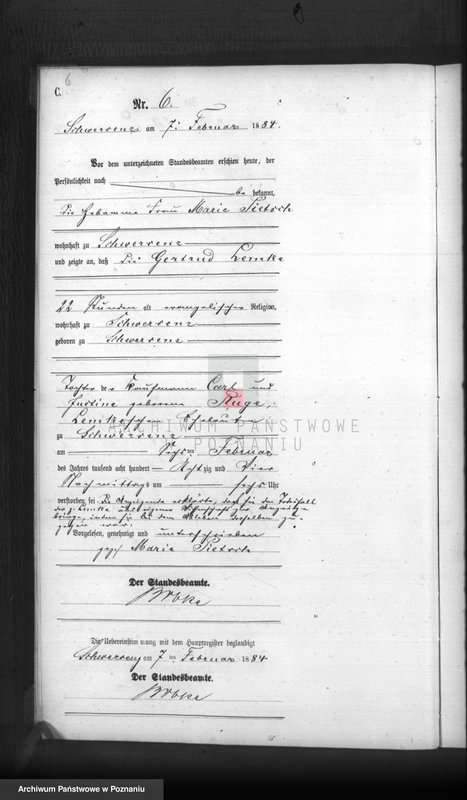 6
C.
Nr. 6.
Schwersenz am 7. Februar 1884.
Vor dem unterzeichneten Standesbeamten erschien heute, der
Persönlichkeit nach
be kannt,
die Hebamme Frau Marie Pietsch
wohnhaft zu Schwersenz
und zeigte an, daß die Gertrud Lemke
22 Stunden alt evangelischer Religion,
wohnhaft zu Schwersenz
geboren zu Schwersenz
Tochter des Kaufmann Carl und
Justine geborene Ruge,
Lemkeschen Eheleute
zu Schwersenz
am Sechsten Februar
des Jahres tausend acht hundert Achtzig und Vier
Nachmittags um sechs Uhr
verstorben sei. Die Anzeigende erklärte, daß sie den Todesfall
der p. Lemke aus eigener Wissenschaft zur Anzeige
bringe, indem sie bei dem Ableben derselben zu-
gegen war.
Vorgelesen, genehmigt und unterschrieben
gez. Marie Pietsch
Der Standesbeamte.
Die Uebereinstimmung mit dem Hauptregister beglaubigt
Schwersenz am 7ten Februar 1884
Der Standesbeamte.
ARCHIWUM PAŃSTWOWE
W POZNANIU
Archiwum Państwowe w Poznaniu